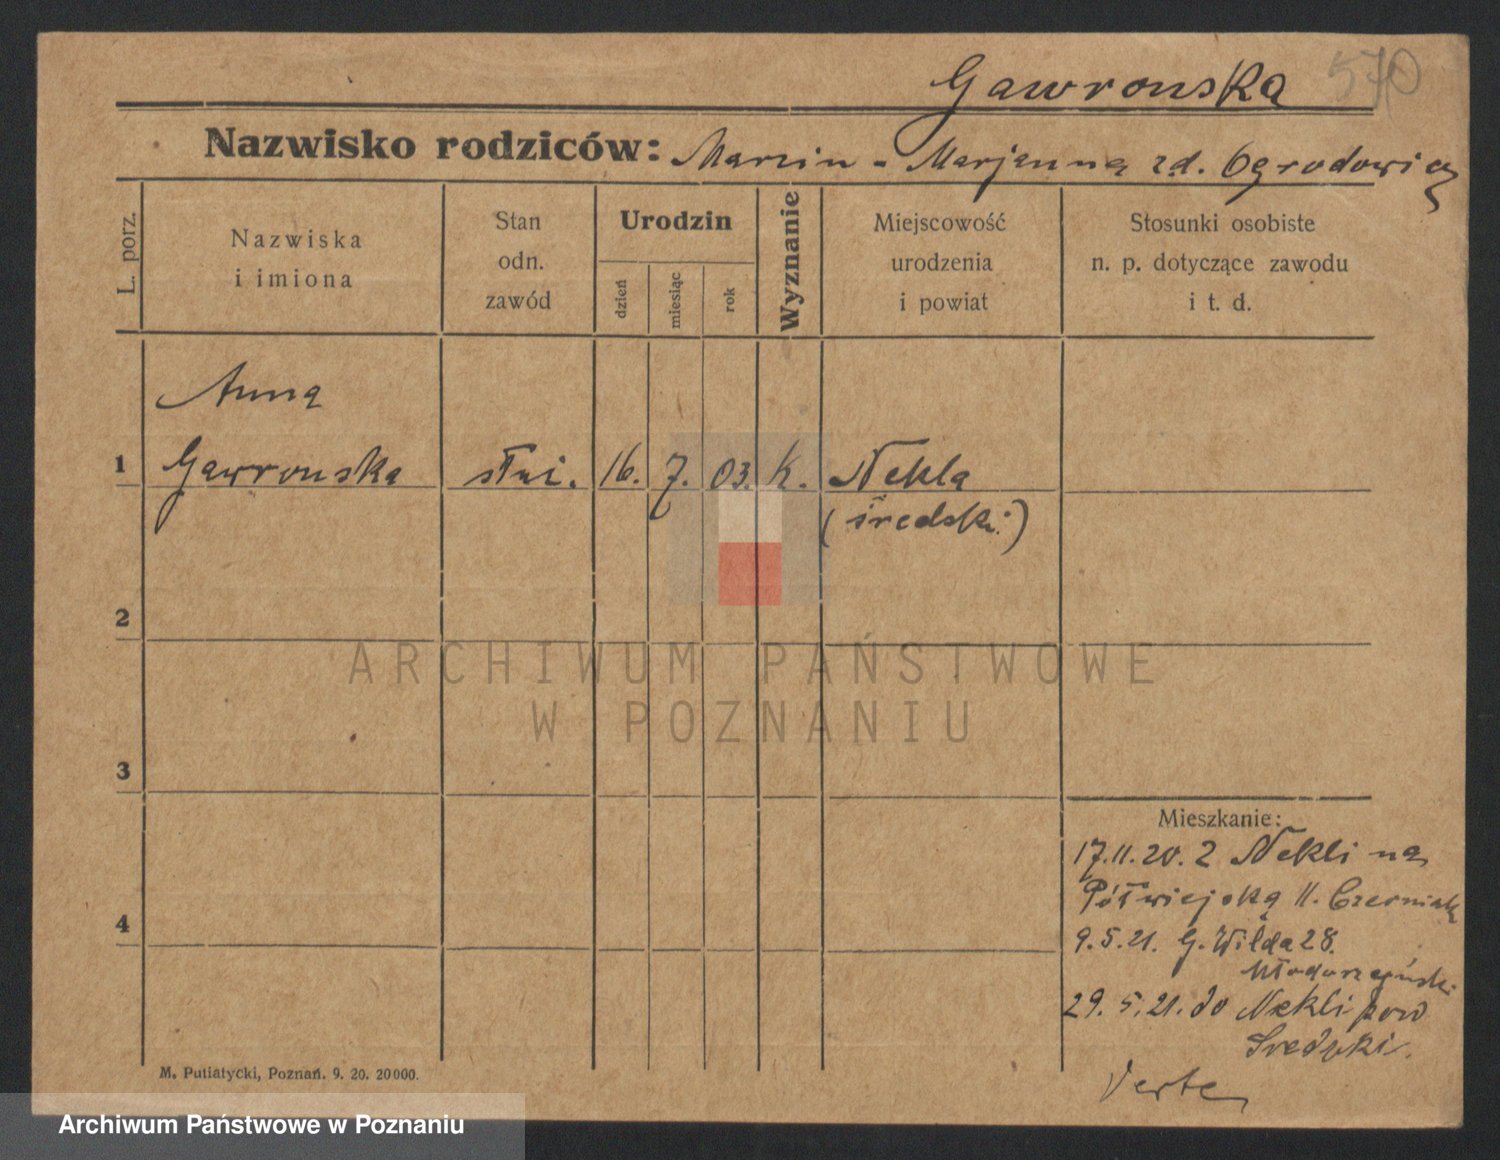 Gawronska 570
Nazwisko rodziców: Marcin - Marjanna zd. Ogrodowicz
L. porz.
Nazwiska
i imiona
Stan
odn.
zawód
Urodzin
dzień
miesiąc
rok
Wyznanie
Miejscowość
urodzenia
i powiat
Stosunki osobiste
n. p. dotyczące zawodu
i t. d.
Anna
1 Gawronska służ. 16. 7. 03. k. Nekla
(średski)
2
ARCHIWUM PAŃSTWOWE
W POZNANIU
3
Mieszkanie:
17.11.20. z Nekli na
Półwiejską 11. Czerniak
4
9.5.21. G. Wilda 28.
29.5.21. do Nekli pow
Średzki.
Verte
M. Putiatycki, Poznań. 9. 20. 20000.
Archiwum Państwowe w Poznaniu